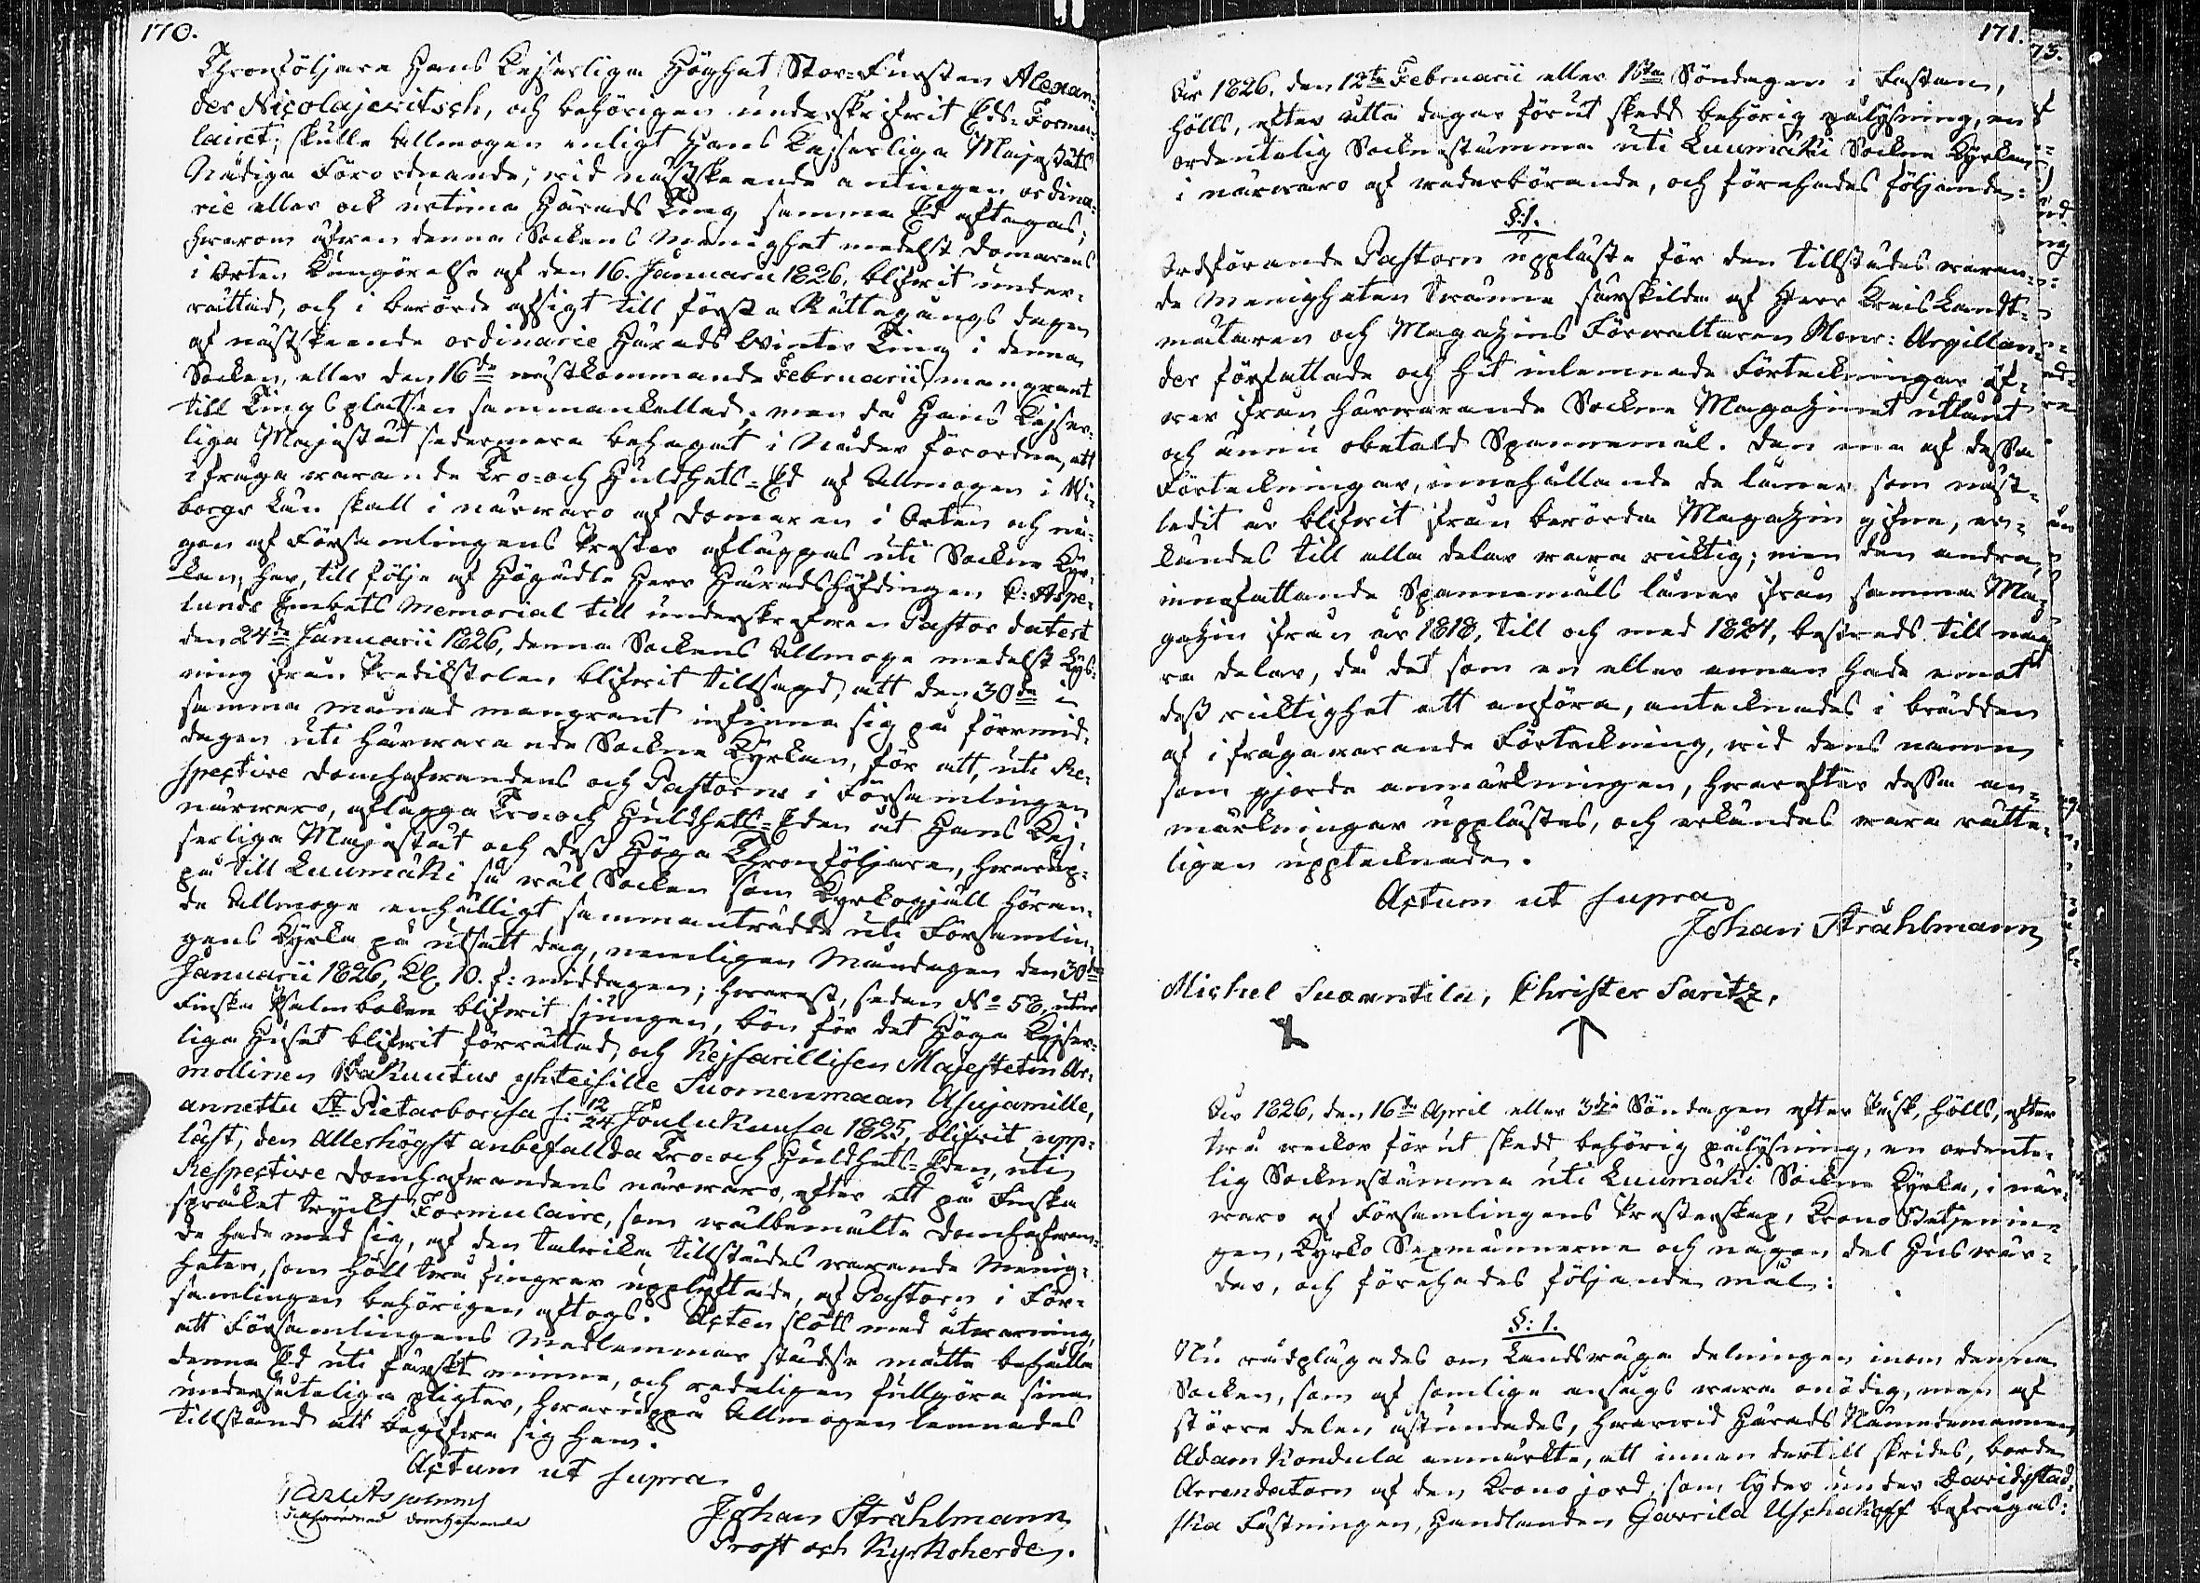 170.
Thronföljare Hans Kejserliga Höghet Stor-Fursten Alexan-
der Nicolajevitsch, och behörigen underskrifvit Eds-Formu-
lairet; skulle Allmogen enligt Hans Kejserliga Majestäts
Nådiga Förordnande, vid nästskeende antingen ordina-
rie eller ock urtima Härads Ting samma Ed aftagas;
hvarom äfven denna Sockens Menighet medelst Domarens
i Orten Kungörelse af den 16. Januarii 1826, blifvit under-
rättad, och i berörde afsigt till första Rättegångs dagen
af nästskeende ordinarie Härads Winter Ting i denna
Socken, eller den 16de nästkommande Februarii mangrant
till Tings platsen sammankallad; men då Hans Kejser-
liga Majestät sedermera behagat i Nåder förordna, att
i fråga varande Tro- och Huldhets-Ed af Allmogen i Wi-
borgs Län skall i närvaro af Domaren i Orten och nå-
gon af Församlingens Prester afläggas uti Sockne Kyr-
kan; har, till följe af Högädle Herr Häradshöfdingen C: Aspe-
lunds Embets Memorial till underskrefven Pastor datert
den 24de Januarii 1826, denna Sockens Allmoge medelst Lys-
ning från Predikstolen blifvit tillsagd, att den 30de i
samma månad mangrant infinna sig på förmid-
dagen uti härvarande Sockne Kyrkan, för att, uti Re-
spective Domhafvandens och Pastorns i Församlingen
närvaro, aflägga Tro- och Huldhets-Eden åt Hans Kej-
serliga Majestät och dess Höga Thronföljare, hvarup-
på till Luumäki så väl Socken som Kyrkogjäll hören-
de Allmoge enhälligt sammanträdde uti Församlin-
gens Kyrka på utsatt dag, nemligen Måndagen den 30de
Januarii 1826, Kl. 10. f: middagen; hvarest, sedan No 58, utur
Finska Psalmboken blifvit sjungen, bön för det Höga Kejser-
liga Huset blifvit förrättad, och Kejsarillisen Majestetin Ar-
mollinen Wakuutus yhteisille Suomenmaan Asujamille,
annettu St Pietarborisa s: 12/24 Joulukuusa 1825, blifvit upp-
läst, den Allerhögst anbefallda Tro- och Huldhets-Eden, uti
Respective Domhafvandens närvaro, efter ett på Finska
språket tryckt Formulaire, som välbemälte Domhafvan-
de hade med sig, af den talrika tillstädes varande Menig-
heten, som höll två fingrar upplyftade, af Pastorn i För-
samlingen behörigen aftogs. Acten slöts med åtvarning,
att Församlingens Medlemmar städse måtte behålla
denna Ed uti färskt minne, och redeligen fullgöra sina
undersåtelige pligter, hvaruppå Allmogen lemnades
tillstånd att begifva sig hem.
Actum ut supra
Johan Stråhlmann
Prost och Kyrkoherde.
171.
År 1826, den 12te Februarii eller 1sta Söndagen i Fastan,
hölls, efter åtta dagar förut skedd behörig pålysning, en
ordentelig Sockne stämma uti Luumäki Sockne Kyrka
i närvaro af vederbörande, och förehades följande:
§:1.
Ordförande Pastorn uppläste för den tillstädes varan-
de Menigheten tvänne särskilda af Herr Kreis Landt-
mätaren och Magazins Förvaltaren Monr: Argillan-
der författade och hit inlemnade Förteckningar öf-
ver ifrån härvarande Sockne Magazinet utlånt
och ännu obetald Spannemål. Den ena af dessa
Förteckningar, innehållande de låner som näst-
ledit år blifvit ifrån berörda Magazin gifne, er-
kändes till alla delar vara riktig; men den andra,
innefattande Spannemåls låner från samma Ma-
gazin ifrån år 1818, till och med 1824, bestreds till någ-
ra delar, då det som en eller annan hade emot
dess riktighet att anföra, antecknades i brädden
af ifrågavarande Förteckning, vid dens namn
som gjorde anmärkningen, hvarefter dessa an-
märkningar upplästes, och erkändes vara rätte-
ligen upptecknade.
Actum ut supra
Johan Stråhlmann
Michel Suoantila, Christer Saritz,
År 1826, den 16de April eller 3dje Söndagen efter Påsk, hölls, efter
två veckor förut skedd behörig pålysning, en ordente-
lig Sockne stämma uti Luumäki Sockne Kyrka, i när-
varo af Församlingens Presterskap, Krono Betjenin-
gen, Kyrko Sexmännerne och någon del Husvär-
dar, och förehades följande mål:
§:1.
Nu rådplägades om Landsvägs delningen inom denna
Socken, som af somlige ansågs vara onödig, men af
större delen åstundades, hvarvid Härads Nämndemannen
Adam Kondula anmärkte, att innan dertill skrides, borde
Arrendatorn af den Krono jord, som lyder under Davidstad-
ska Fästningen, Handlanden Gavrila Uschakoff befrågas: